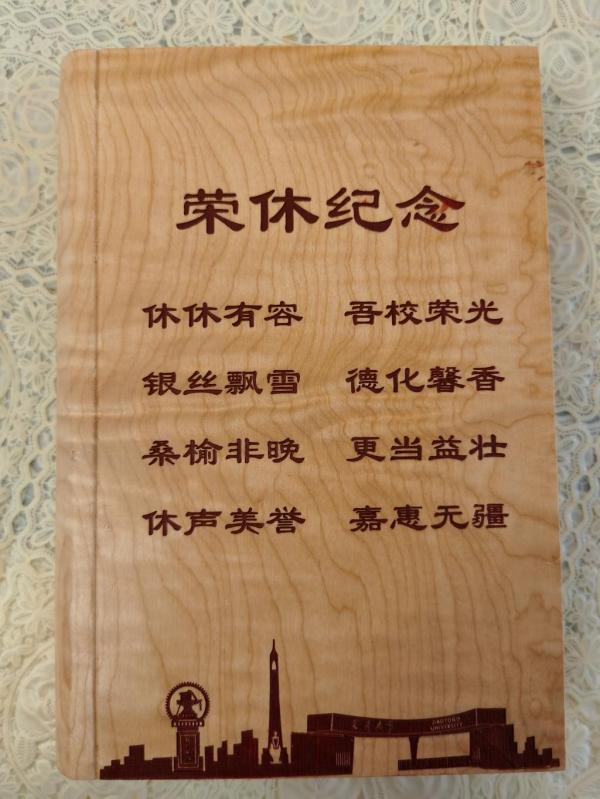 荣休纪念
休休有容 吾校荣光
银丝飘雪 德化馨香
桑榆非晚 更当益壮
休声美誉 嘉惠无疆
交通大学
JIAOTONG
UNIVERSITY